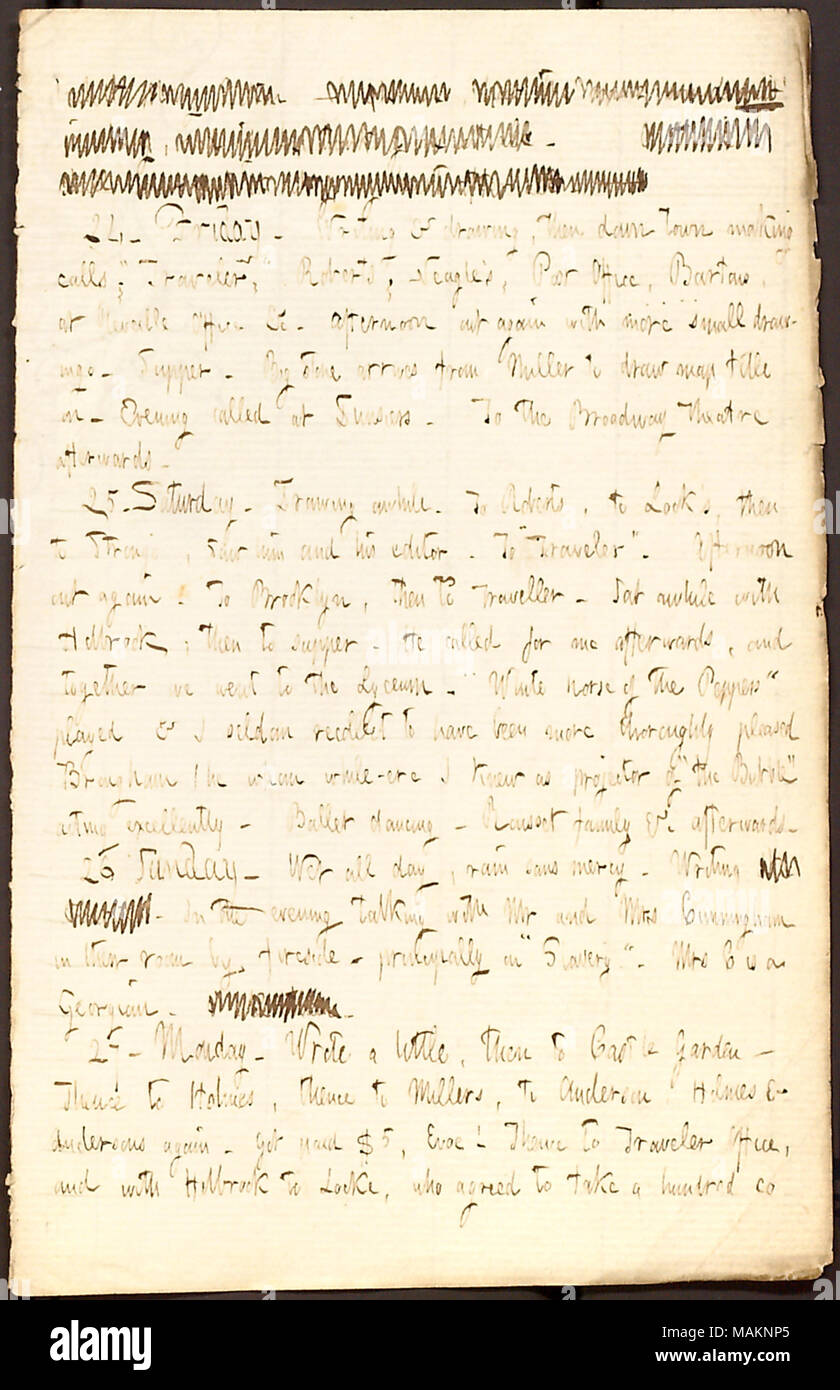 24. Friday. Writing & drawing, then down town making
calls; "Traveler," Roberts', Neagle's, Post Office, Bartons,
at Office &c. Afternoon out again with more small draw-
ings. Supper. Big stone arrives from Miller to draw map title
on. Evening called at . To the Broadway Theatre
afterwards.
25. Saturday. Drawing awhile. To Roberts, to Lock's, then
to Strong's, saw him and his editor. To "Traveler". Afternoon
out again. To Brooklyn, then to Traveller. Sat awhile with
Holbrook, then to supper. He called for me afterwards, and
together we went to the Lyceum. "White horse of the Peppers"
played & I seldom recollect to have been more thoroughly pleased
Brougham (he whom while-ere I knew as projector of "the Bubble"
acting excellently. Ballet dancing. Rousset family &c afterwards.
26 Sunday. Wet all day, rain sans mercy. Writing
In the evening talking with Mr and Mrs Cunningham
in their room by fireside - principally on "Slavery". Mrs C is a
Georgian.
27. Monday. Wrote a little, then to Castle Garden.
Thence to Holmes, thence to Millers, to Anderson. Holmes &
Andersons again. Got paid $5, Evoe! Thence to Traveler Office,
and with Holbrook to Locke, who agreed to take a hundred co
alamy
Image ID: MAKNP5
www.alamy.com